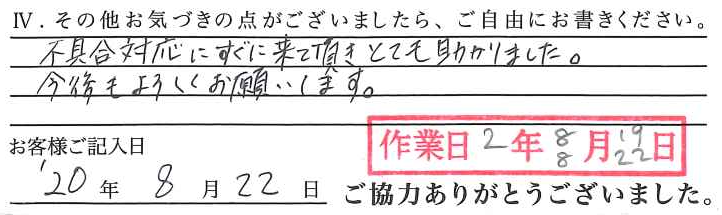 Ⅳ．その他お気づきの点がございましたら、ご自由にお書きください。
不具合対応にすぐに来て頂きとても助かりました。
今後もよろしくお願いします。
お客様ご記入日
'20 年 8 月 22 日
作業日 2年 8月 19日
8 22
ご協力ありがとうございました。